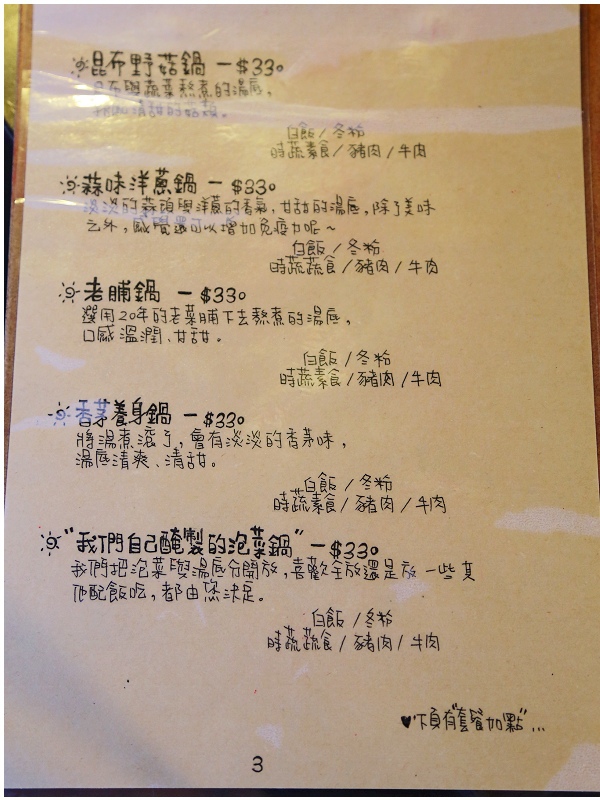 昆布野菇鍋 — $330
昆布與蔬菜熬煮的湯底,
搭配清甜的菇類。
白飯 / 冬粉
時蔬素食 / 豬肉 / 牛肉
蒜味洋蔥鍋 — $330
淡淡的蒜頭與洋蔥的香氣,甘甜的湯底,除了美味
之外,感覺還可以增加免疫力呢~
白飯 / 冬粉
時蔬蔬食 / 豬肉 / 牛肉
老脯鍋 — $330
選用20年的老菜脯下去熬煮的湯底,
口感溫潤、甘甜。
白飯 / 冬粉
時蔬素食 / 豬肉 / 牛肉
香茅養身鍋 — $330
將湯煮滾了,會有淡淡的香茅味,
湯底清爽、清甜。
白飯 / 冬粉
時蔬素食 / 豬肉 / 牛肉
"我們自己醃製的泡菜鍋" — $330
我們把泡菜與湯底分開放,喜歡全放還是放一些其
他配飯吃,都由您決定。
白飯 / 冬粉
時蔬蔬食 / 豬肉 / 牛肉
♥下頁有"套餐加點"...
3